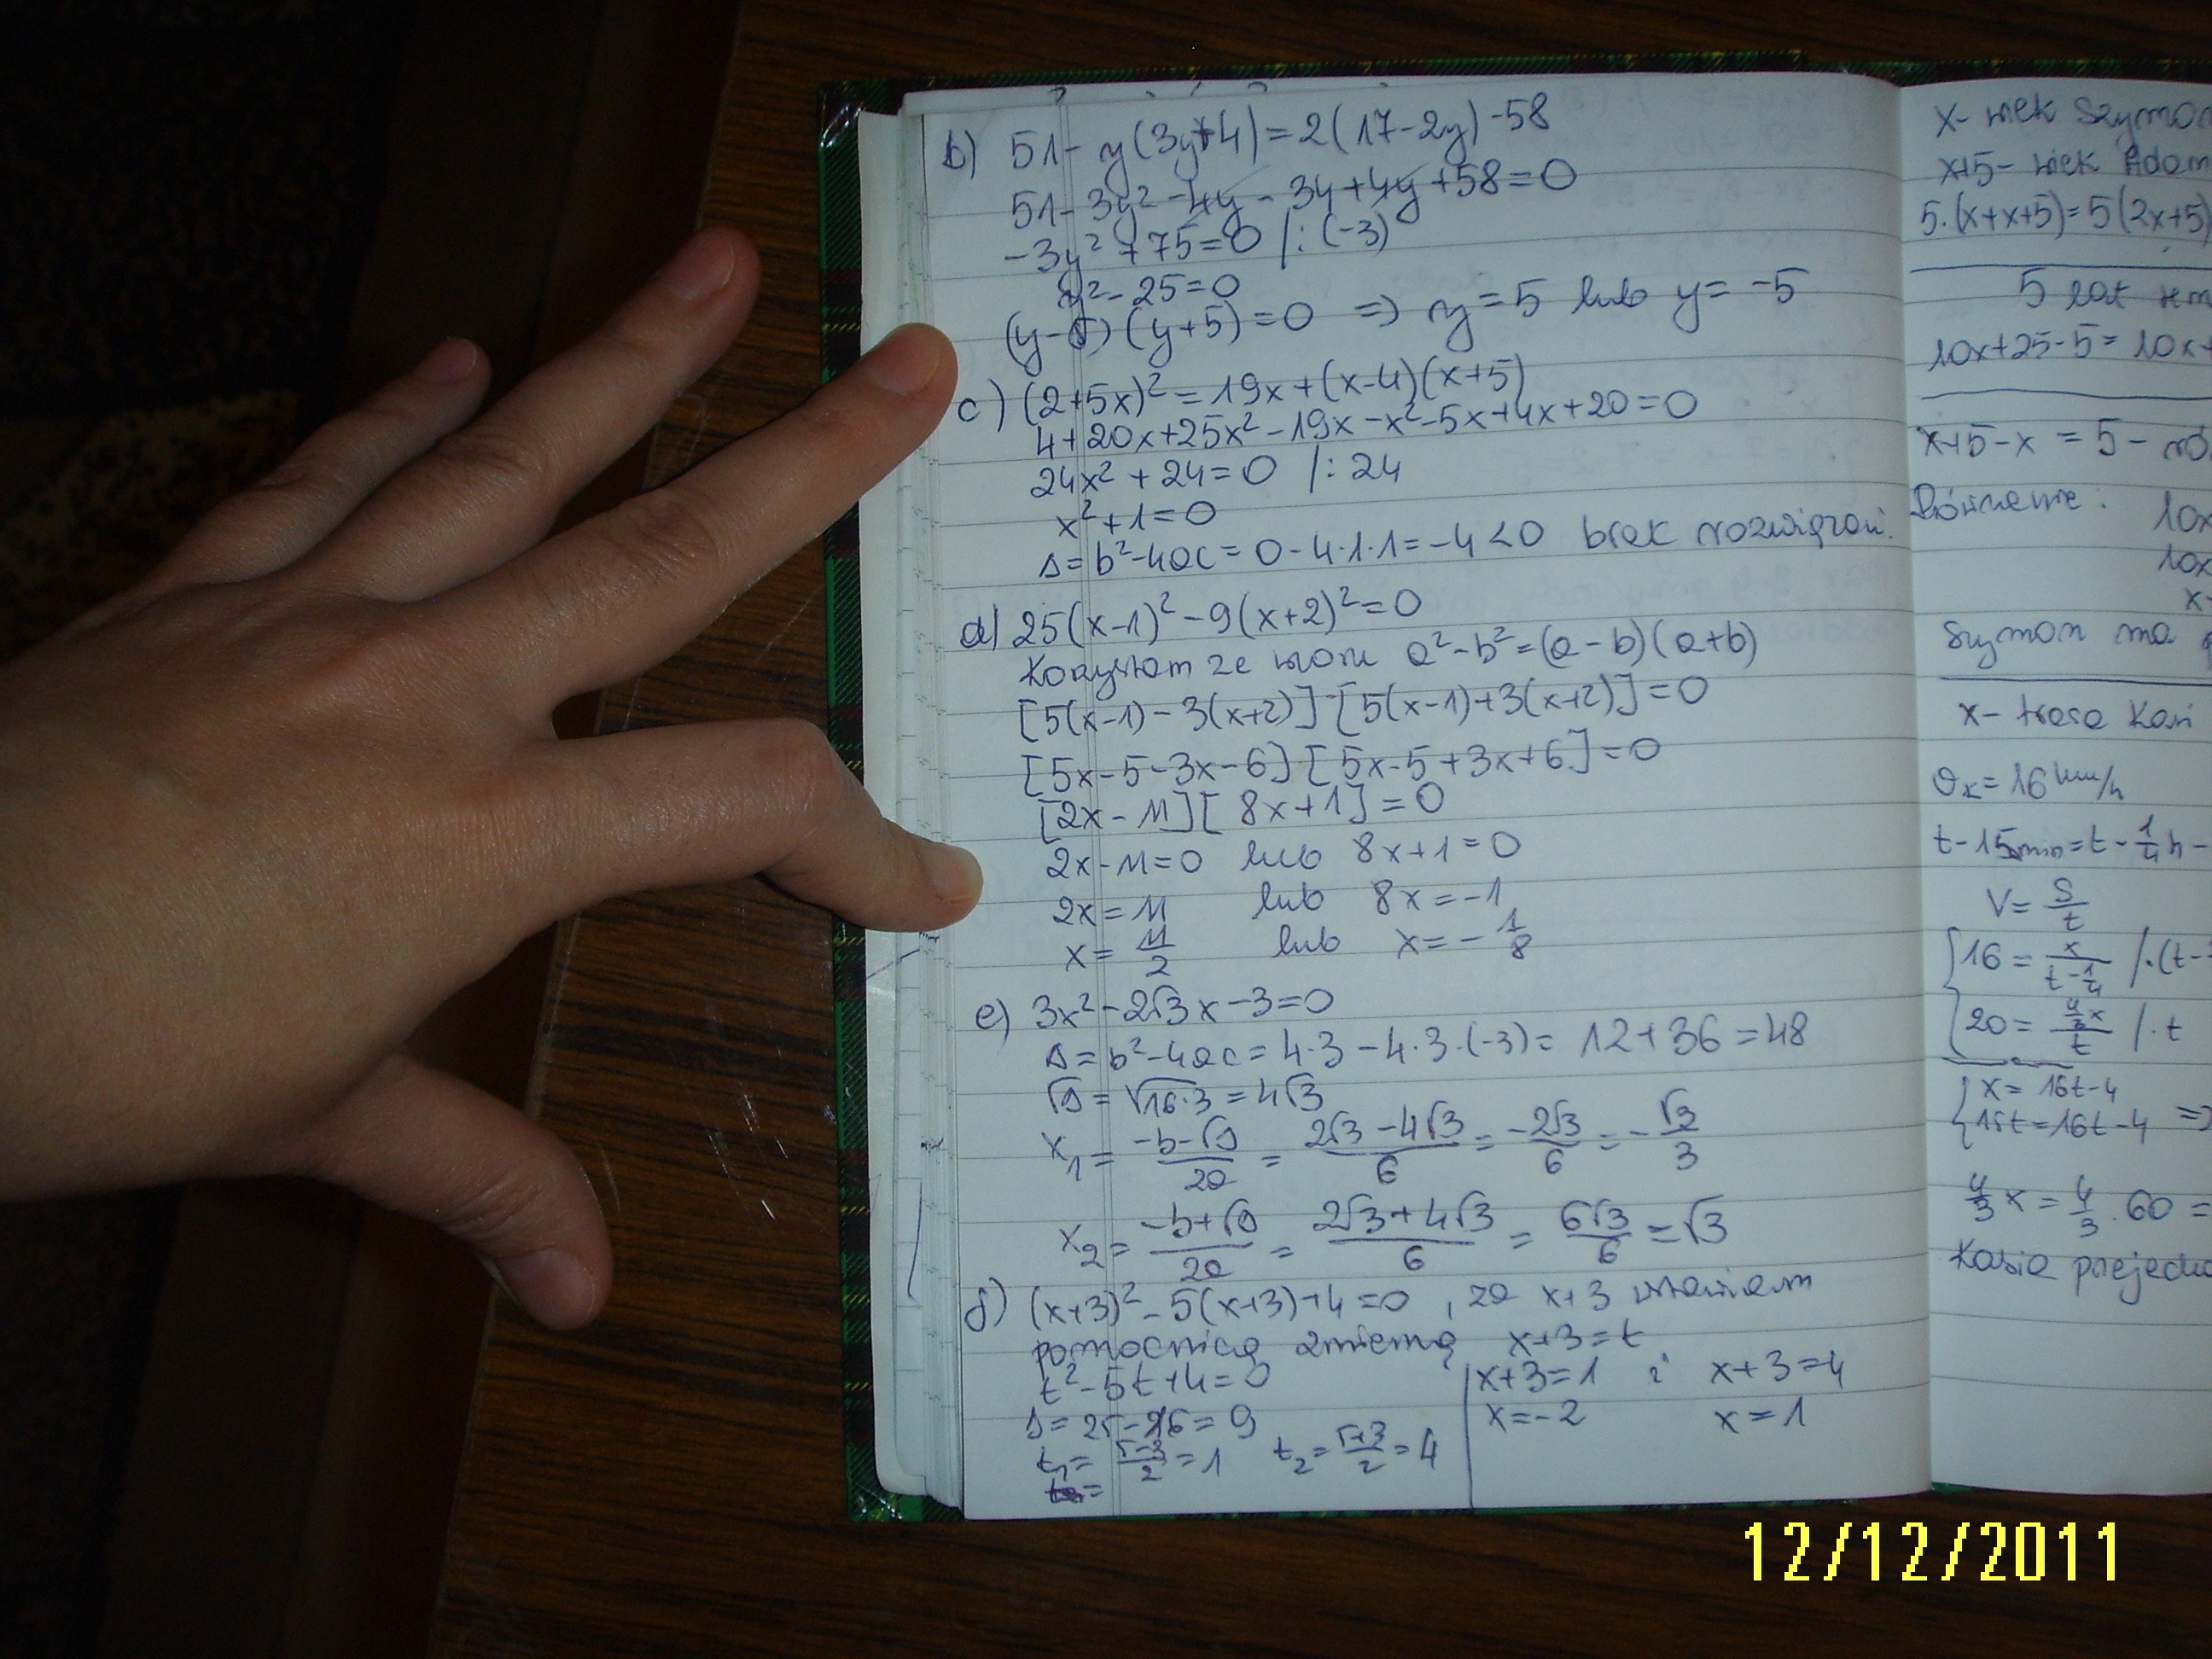 b) 51-y(3y+4)=2(17-2y)-58
51-3y²-4y-34+4y+58=0
-3y²+75=0 /:(-3)
y²-25=0
(y-5)(y+5)=0 => y=5 lub y=-5
c) (2+5x)²=19x+(x-4)(x+5)
4+20x+25x²-19x-x²-5x+4x+20=0
24x²+24=0 /:24
x²+1=0
Δ=b²-4ac=0-4·1·1=-4<0 brak rozwiązań.
d) 25(x-1)²-9(x+2)²=0
Korzystam ze wzoru a²-b²=(a-b)(a+b)
[5(x-1)-3(x+2)]·[5(x-1)+3(x+2)]=0
[5x-5-3x-6]·[5x-5+3x+6]=0
[2x-11][8x+1]=0
2x-11=0 lub 8x+1=0
2x=11 lub 8x=-1
x=11/2 lub x=-1/8
e) 3x²-2√3x-3=0
Δ=b²-4ac=4·3-4·3·(-3)=12+36=48
√Δ=√16·3=4√3
x₁=(-b-√Δ)/2a=(2√3-4√3)/6=-2√3/6=-√3/3
x₂=(-b+√Δ)/2a=(2√3+4√3)/6=6√3/6=√3
f) (x+3)²-5(x+3)+4=0, za x+3 wstawiam
pomocniczą zmienną x+3=t
t²-5t+4=0
Δ=25-16=9
t₁=(5-3)/2=1 t₂=(5+3)/2=4
x+3=1 i x+3=4
x=-2 x=1
x-wiek Szymon
x+5-wiek Adam
5·(x+x+5)=5(2x+5)
5 lat
10x+25-5=10x+
x+5-x=5-
Równanie: 10x
10x
x
Szymon ma
x-trasa Kasi
16 km/h
t-15min=t-1/4h-
V=S/t
16=x/(t-1/4) /·(t-
20=(4/3x)/t /·t
x=16t-4
15t=16t-4 =>
4/3x=4/3·60=
Kasia
12/12/2011